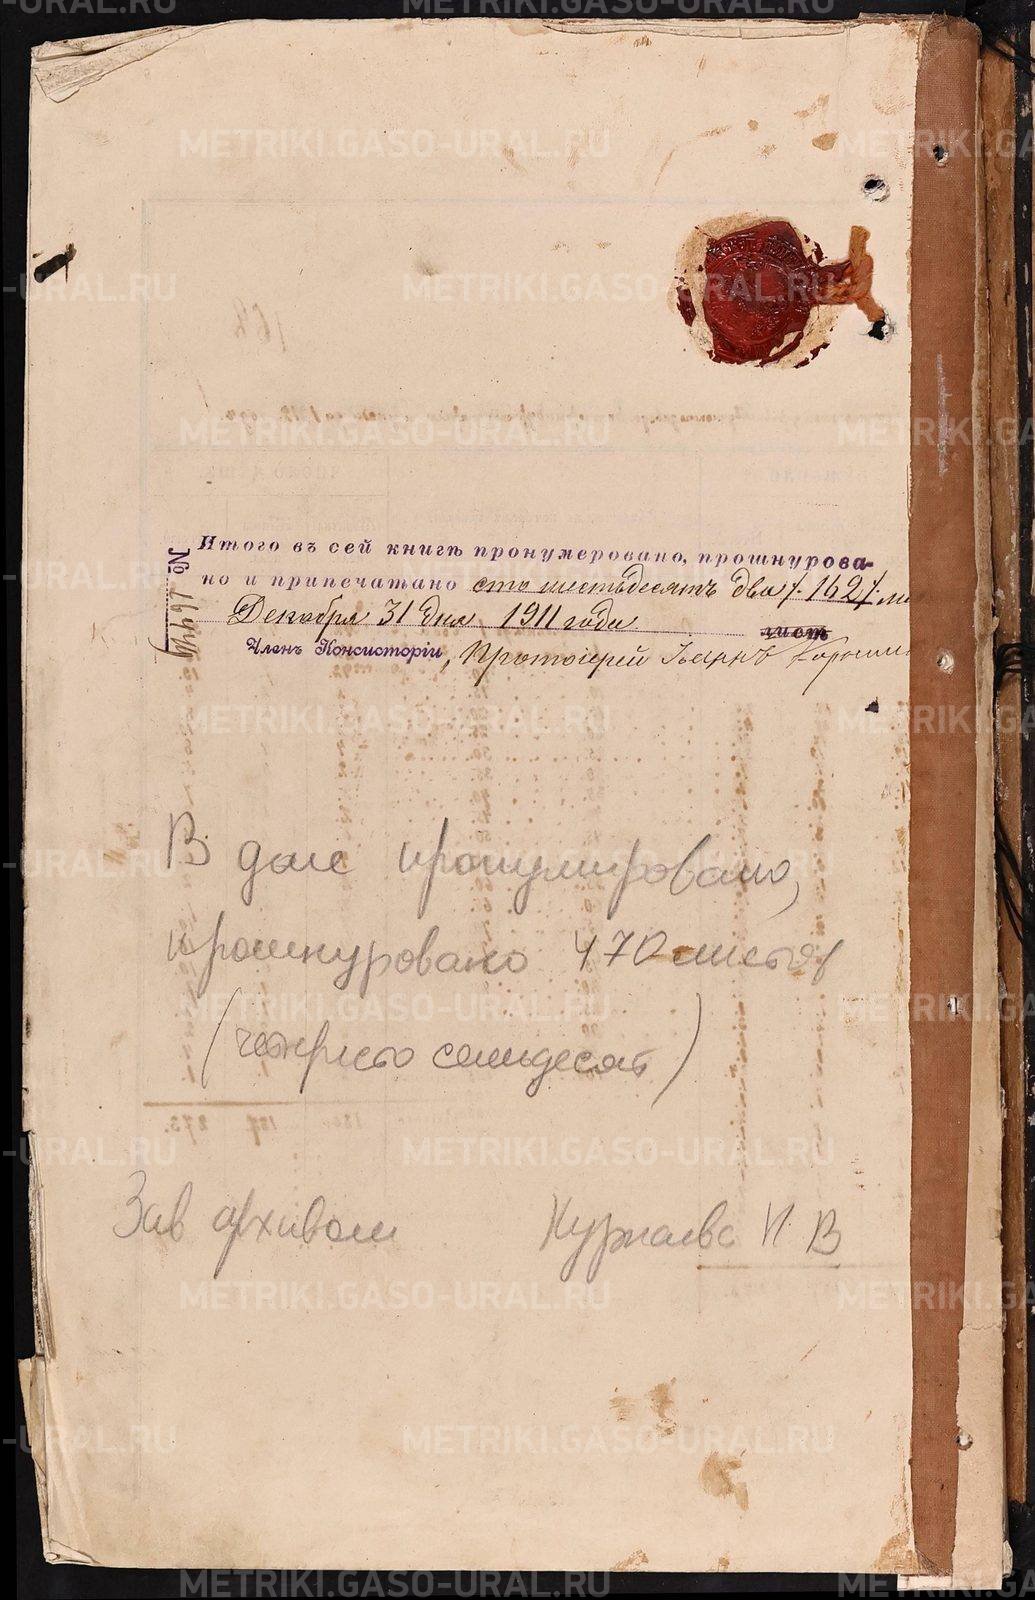 Итого въ сей книгѣ пронумеровано, прошнурова-
но и припечатано сто шестьдесятъ два /. 162 /. ли
Декабря 31 дня 1911 года листъ
Членъ Консисторіи, Протоіерей Іоаннъ
№ 16449
В деле пронумеровано,
прошнуровано 470 листов
(четыреста семьдесят)
Зав архивом И. В
METRIKI.GASO-URAL.RU